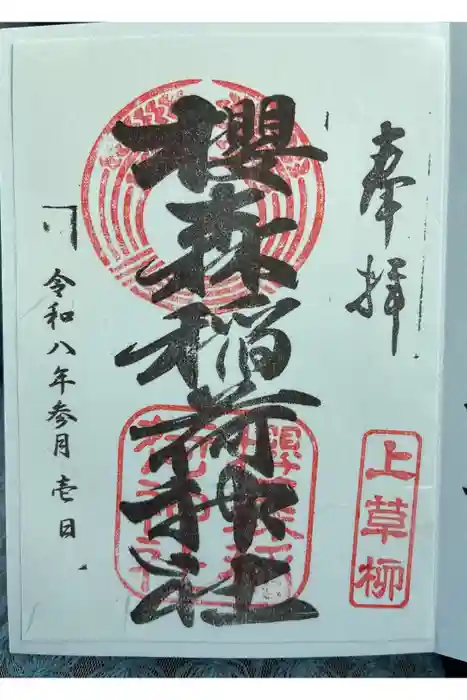 奉拝
上草柳
櫻森稲荷神社
令和八年参月壱日